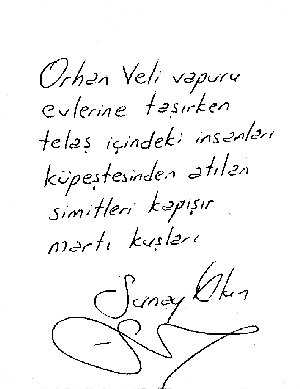 Orhan Veli vapuru
evlerine taşırken
telaş içindeki insanları
küpeştesinden atılan
simitleri kapışır
martı kuşları
Sunay Akın